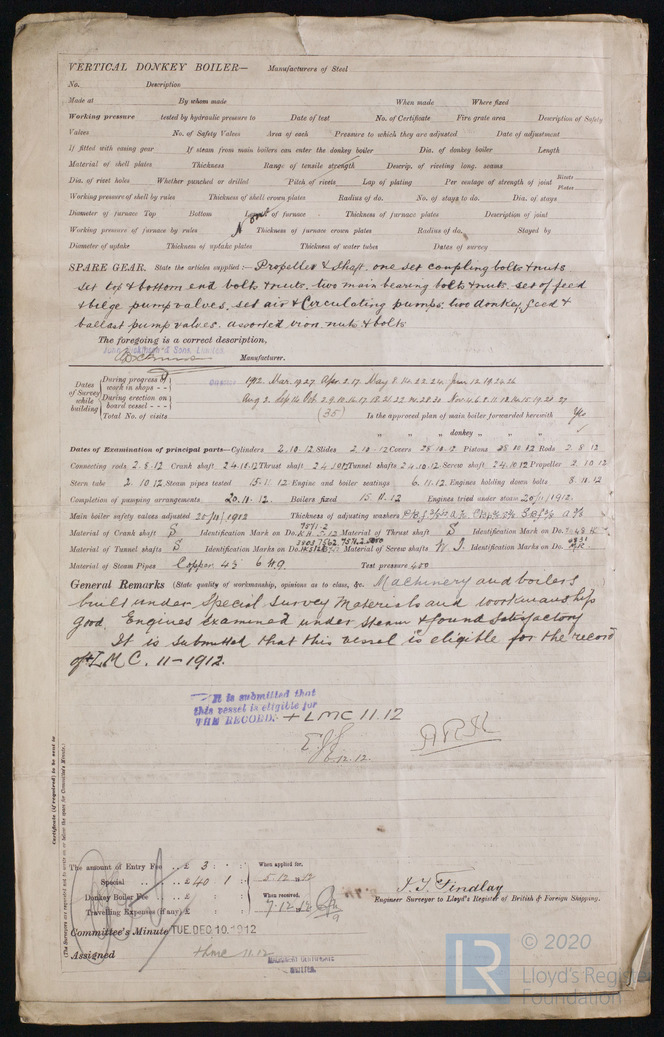 VERTICAL DONKEY BOILER— Manufacturers of Steel
No. Description
Made at By whom made When made Where fixed
Working pressure tested by hydraulic pressure to Date of test No. of Certificate Fire grate area Description of Safety
Valves No. of Safety Valves Area of each Pressure to which they are adjusted Date of adjustment
If fitted with easing gear If steam from main boilers can enter the donkey boiler Dia. of donkey boiler Length
Material of shell plates Thickness Range of tensile strength Descrip. of riveting long. seams
Dia. of rivet holes Whether punched or drilled Pitch of rivets Lap of plating Per centage of strength of joint Rivets Plates
Working pressure of shell by rules Thickness of shell crown plates Radius of do. No. of stays to do. Dia. of stays
Diameter of furnace Top Bottom Length of furnace Thickness of furnace plates Description of joint
Working pressure of furnace by rules None Thickness of furnace crown plates Radius of do. Stayed by
Diameter of uptake Thickness of uptake plates Thickness of water tubes Dates of survey
SPARE GEAR. State the articles supplied:— Propeller & shaft, one set coupling bolts & nuts
set top & bottom end bolts & nuts, two main bearing bolts & nuts, set of feed
& bilge pump valves, set air & Circulating pumps, two donkey feed &
ballast pump valves. assorted iron nuts & bolts
The foregoing is a correct description,
John Dickinson & Sons, Limited
Manufacturer.
Dates of Survey while building
During progress of work in shops - - 1912. Mar. 19.27 Apr. 2.17. May 8.14.22.24. Jun 12.19.24.26
During erection on board vessel - - - Aug 2. Sep 14 Oct 2.9.10.16.17.18.21.22.24.28.30. Nov. 4.6.8.11.12.14.15.19.21.27
Total No. of visits (35) Is the approved plan of main boiler forwarded herewith Yes
" " " donkey " "
Dates of Examination of principal parts—Cylinders 2.10.12 Slides 2.10.12 Covers 28.10.12 Pistons 28.10.12 Rods 2.8.12
Connecting rods 2.8.12 Crank shaft 24.10.12 Thrust shaft 24.10.12 Tunnel shafts 24.10.12 Screw shaft 24.10.12 Propeller 2.10.12
Stern tube 2.10.12 Steam pipes tested 15.11.12 Engine and boiler seatings 6.11.12 Engines holding down bolts 8.11.12
Completion of pumping arrangements 20.11.12. Boilers fixed 15.11.12 Engines tried under steam 20/11/1912.
Main boiler safety valves adjusted 20/11/1912 Thickness of adjusting washers
Material of Crank shaft S Identification Mark on Do. Material of Thrust shaft S Identification Mark on Do.
Material of Tunnel shafts S Identification Marks on Do. Material of Screw shafts W.I. Identification Marks on Do.
Material of Steam Pipes Copper Test pressure 400
General Remarks (State quality of workmanship, opinions as to class, &c. Machinery and boilers
built under Special Survey Materials and workmanship
good. Engines examined under steam & found satisfactory
It is submitted that this vessel is eligible for the record
of + LMC. 11-1912.
It is submitted that
this vessel is eligible for
THE RECORD. + LMC 11.12
6.12.12.
Certificate (if required) to be sent to
(The Surveyors are requested not to write on or below the space for Committee's Minute.)
The amount of Entry Fee .. £ 3 : : When applied for,
Special .. .. £ 40 : 1 : 5.12.12
Donkey Boiler Fee .. £ : : When received,
Travelling Expenses (if any) £ : : 7.12.12
J. T. Findlay
Engineer Surveyor to Lloyd's Register of British & Foreign Shipping.
Committee's Minute TUE. DEC 10. 1912
Assigned + LMC 11.12
MACHINERY CERTIFICATE
WRITTEN.
LR © 2020
Lloyd's Register
Foundation